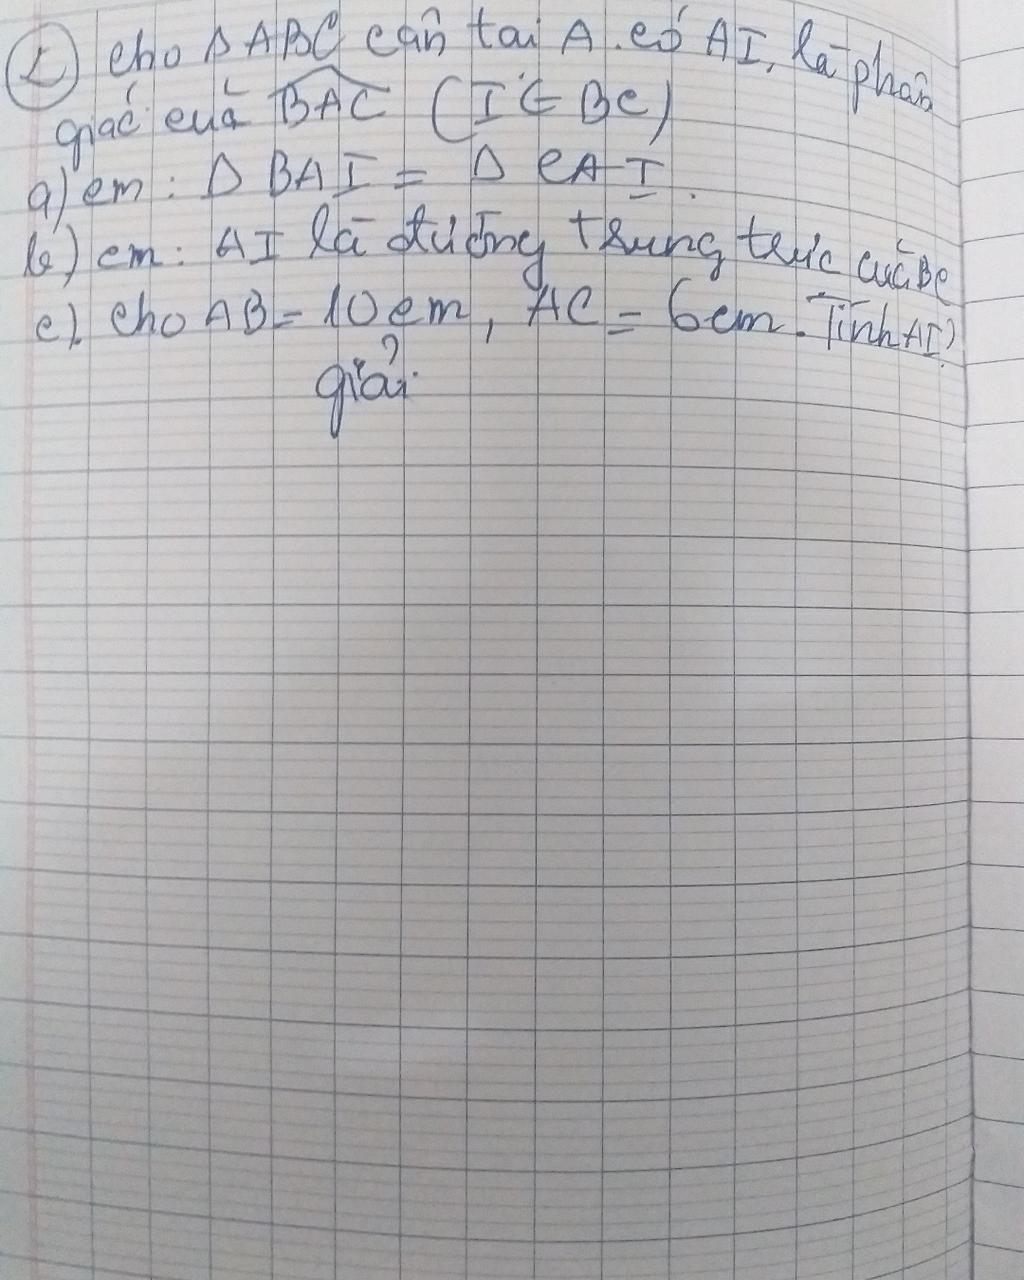 1 Cho Δ ABC cân tại A. có AI, là phân
giác của BAC (I ∈ BC)
a) cm: Δ BAI = Δ CAI.
b) cm: AI là đường trung trực của BC
c). Cho AB = 10cm, AC = 6cm. Tính AI?
giải